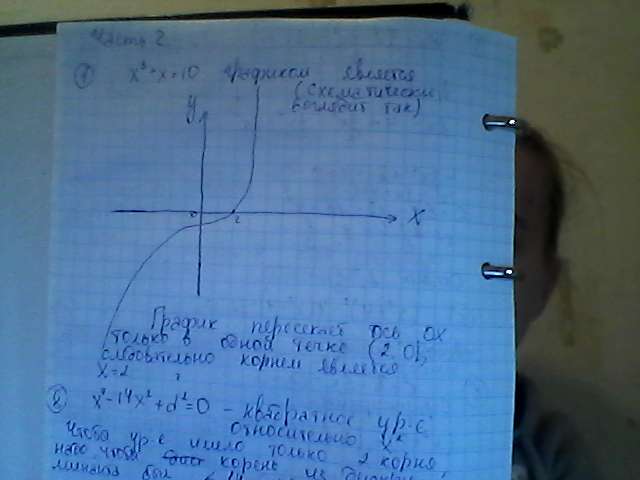 Часть 2
① x³+x=10 графиком является
(схематически
выглядит так)
y
0 2 x
График пересекает ось ox
только в одной точке (2,0),
следовательно корнем является
x=2
② x⁴-14x²+d²=0 - квадратное ур-е
относительно x²
Чтобы ур-е имело только 2 корня,
надо чтобы корень из
был